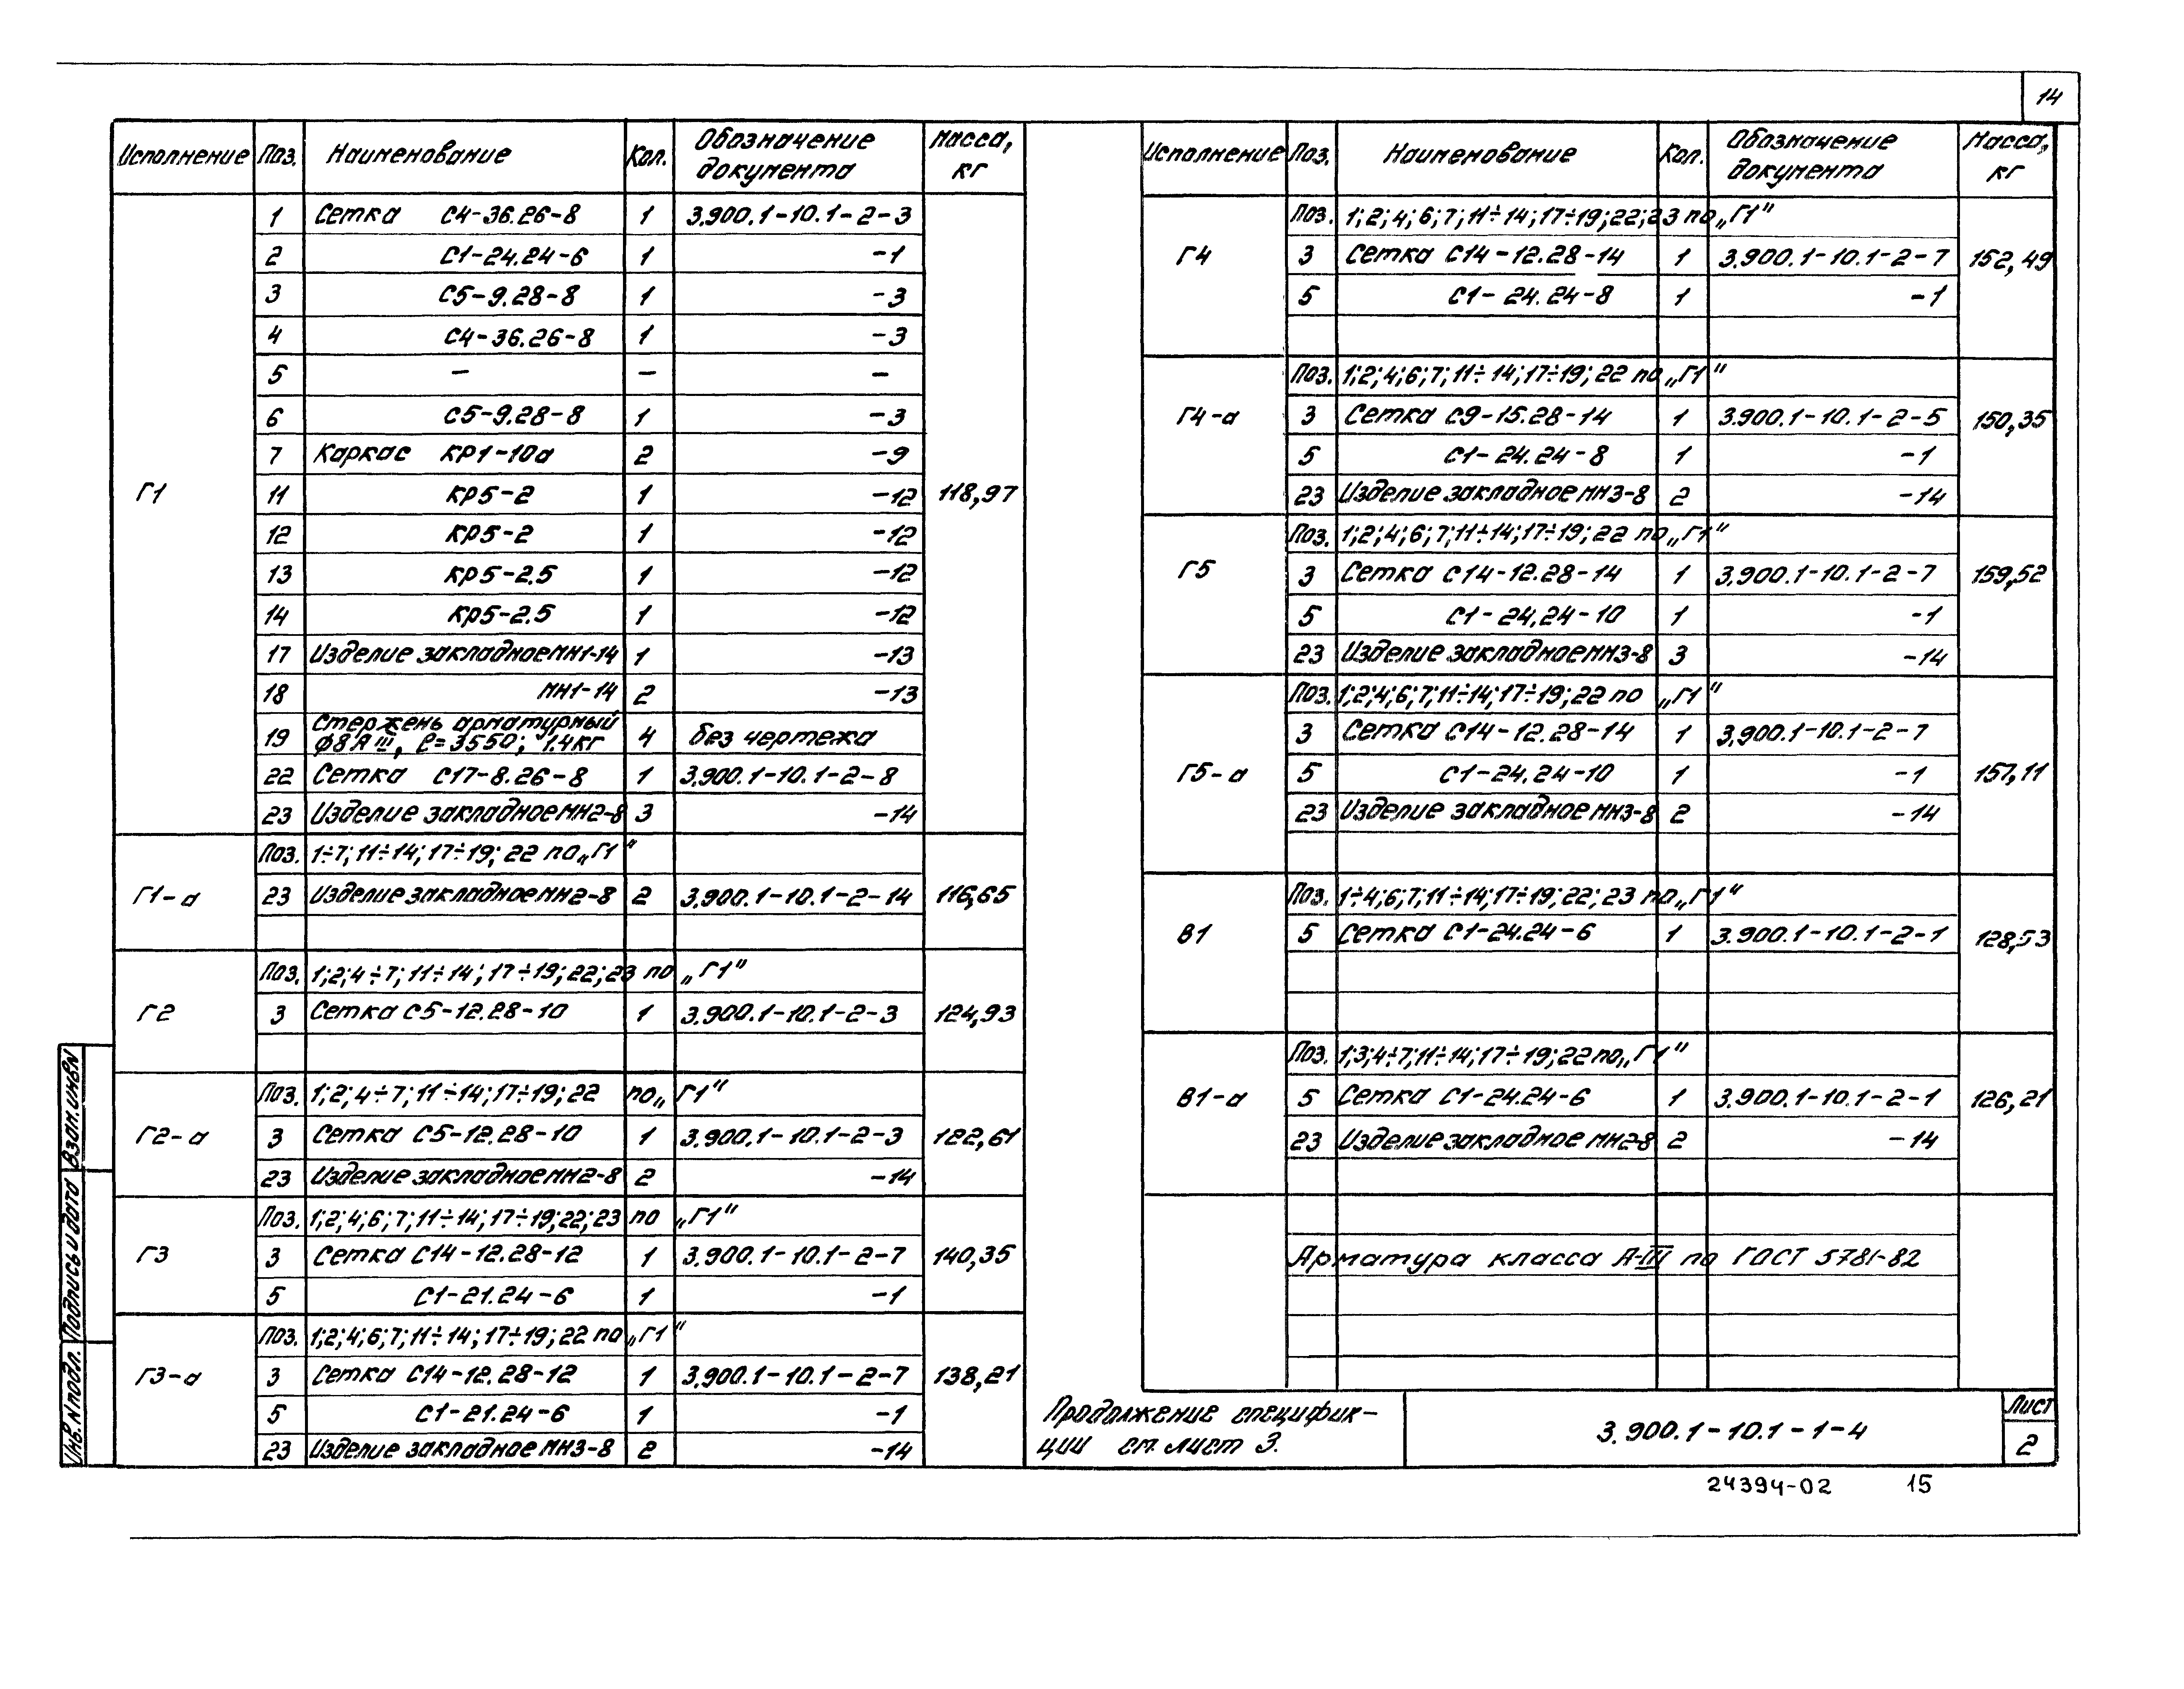 14
Исполнение Поз. Наименование Кол. Обозначение документа Масса, кг
Г1 118,97
1 Сетка С4-36.26-8 1 3.900.1-10.1-2-3
2 С1-24.24-6 1 -1
3 С5-9.28-8 1 -3
4 С4-36.26-8 1 -3
5 — — —
6 С5-9.28-8 1 -3
7 Каркас КР1-10а 2 -9
11 КР5-2 1 -12
12 КР5-2 1 -12
13 КР5-2.5 1 -12
14 КР5-2.5 1 -12
17 Изделие закладное МН1-14 1 -13
18 МН1-14 2 -13
19 Стержень арматурный
ф8АIII, ℓ=3550; 1.4кг 4 без чертежа
22 Сетка С17-8.26-8 1 3.900.1-10.1-2-8
23 Изделие закладное МН2-8 3 -14
Г1-а 116,65
Поз. 1÷7; 11÷14; 17÷19; 22 по „Г1"
23 Изделие закладное МН2-8 2 3.900.1-10.1-2-14
Г2 124,93
Поз. 1;2;4÷7;11÷14;17÷19;22;23 по „Г1"
3 Сетка С5-12.28-10 1 3.900.1-10.1-2-3
Г2-а 122,61
Поз. 1;2;4÷7;11÷14;17÷19;22 по „Г1"
3 Сетка С5-12.28-10 1 3.900.1-10.1-2-3
23 Изделие закладное МН2-8 2 -14
Г3 140,35
Поз. 1;2;4;6;7;11÷14;17÷19;22;23 по „Г1"
3 Сетка С14-12.28-12 1 3.900.1-10.1-2-7
5 С1-21.24-6 1 -1
Г3-а 138,21
Поз. 1;2;4;6;7;11÷14;17÷19;22 по „Г1"
3 Сетка С14-12.28-12 1 3.900.1-10.1-2-7
5 С1-21.24-6 1 -1
23 Изделие закладное МН3-8 2 -14
Исполнение Поз. Наименование Кол. Обозначение документа Масса, кг
Г4 152,49
Поз. 1;2;4;6;7;11÷14;17÷19;22;23 по „Г1"
3 Сетка С14-12.28-14 1 3.900.1-10.1-2-7
5 С1-24.24-8 1 -1
Г4-а 150,35
Поз. 1;2;4;6;7;11÷14;17÷19;22 по „Г1"
3 Сетка С9-15.28-14 1 3.900.1-10.1-2-5
5 С1-24.24-8 1 -1
23 Изделие закладное МН3-8 2 -14
Г5 159,52
Поз. 1;2;4;6;7;11÷14;17÷19;22 по „Г1"
3 Сетка С14-12.28-14 1 3.900.1-10.1-2-7
5 С1-24.24-10 1 -1
23 Изделие закладное МН3-8 3 -14
Г5-а 157,11
Поз. 1;2;4;6;7;11÷14;17÷19;22 по „Г1"
3 Сетка С14-12.28-14 1 3.900.1-10.1-2-7
5 С1-24.24-10 1 -1
23 Изделие закладное МН3-8 2 -14
В1 128,53
Поз. 1÷4;6;7;11÷14;17÷19;22;23 по „Г1"
5 Сетка С1-24.24-6 1 3.900.1-10.1-2-1
В1-а 126,21
Поз. 1;3;4÷7;11÷14;17÷19;22 по „Г1"
5 Сетка С1-24.24-6 1 3.900.1-10.1-2-1
23 Изделие закладное МН2-8 2 -14
Арматура класса А-III по ГОСТ 5781-82
Продолжение специфик-
ции см. лист 3.
3.900.1-10.1-1-4
Лист
2
24394-02 15
Взам.инв№
Подпись и дата
Инв.№подл.